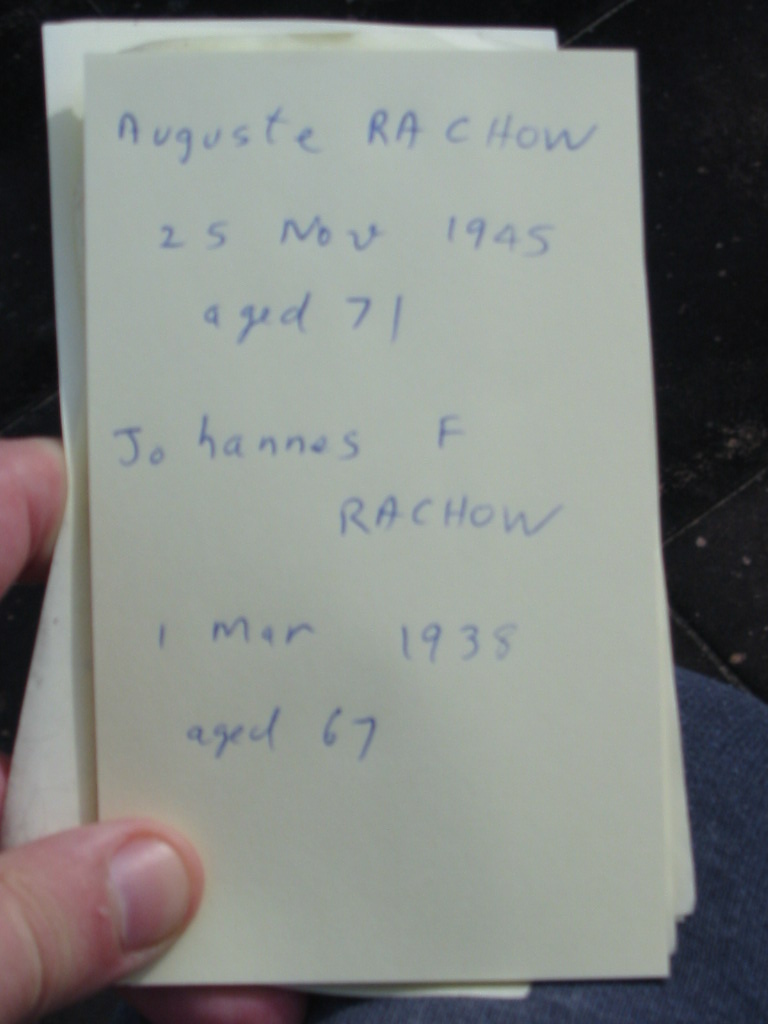 Auguste RACHOW
25 Nov 1945
aged 71
Johannes F
RACHOW
1 Mar 1938
aged 67